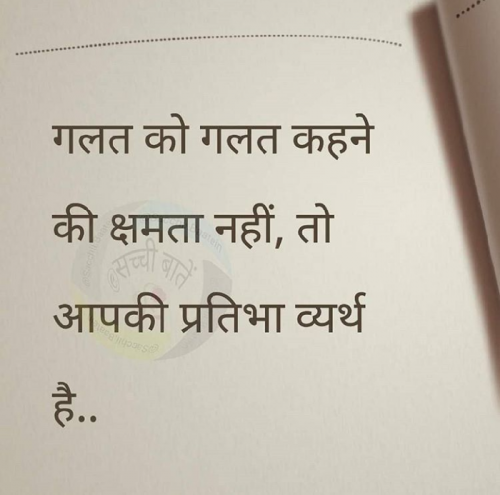 गलत को गलत कहने
की क्षमता नहीं, तो
आपकी प्रतिभा व्यर्थ
है..
@सच्ची बातें